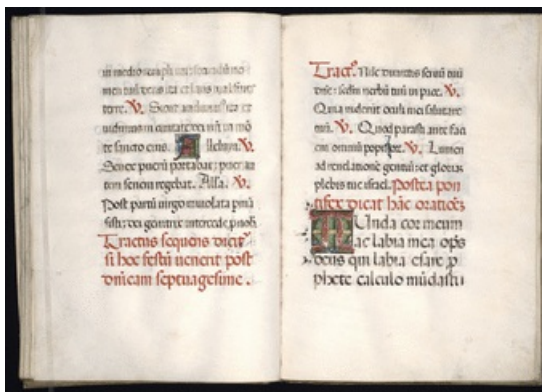 in medio templi tui: secundū no
men tuū deus ita et laus tua ī fines
terre. V. Sicut audiuimus ita et
uidimus in ciuitate dei nr̄i in mō
te sancto eius. Alleluya. V.
Senex puerū portabat: puer au
tem senem regebat. Alla. V.
Post partū uirgo inuiolata pmā
sisti: dei genitrix intercede p nob
Tractus sequens dicit᷑
si hoc festū uenerit post
dn̄icam septuagesime.
Tract᷒. Nūc dimittis seruū tuū
dn̄e: scdm uerbū tuū in pace. V.
Quia uiderūt oculi mei salutare
tuū. V. Quod parasti ante faci
em omniū poplor. V. Lumen
ad reuelationē gentiū: et gloriā
plebis tue israel. Postea pon
tifex dicat hāc orationēs
Munda cor meum
ac labia mea op̄s
deus qui labia esaie p
phete calculo mūdasti